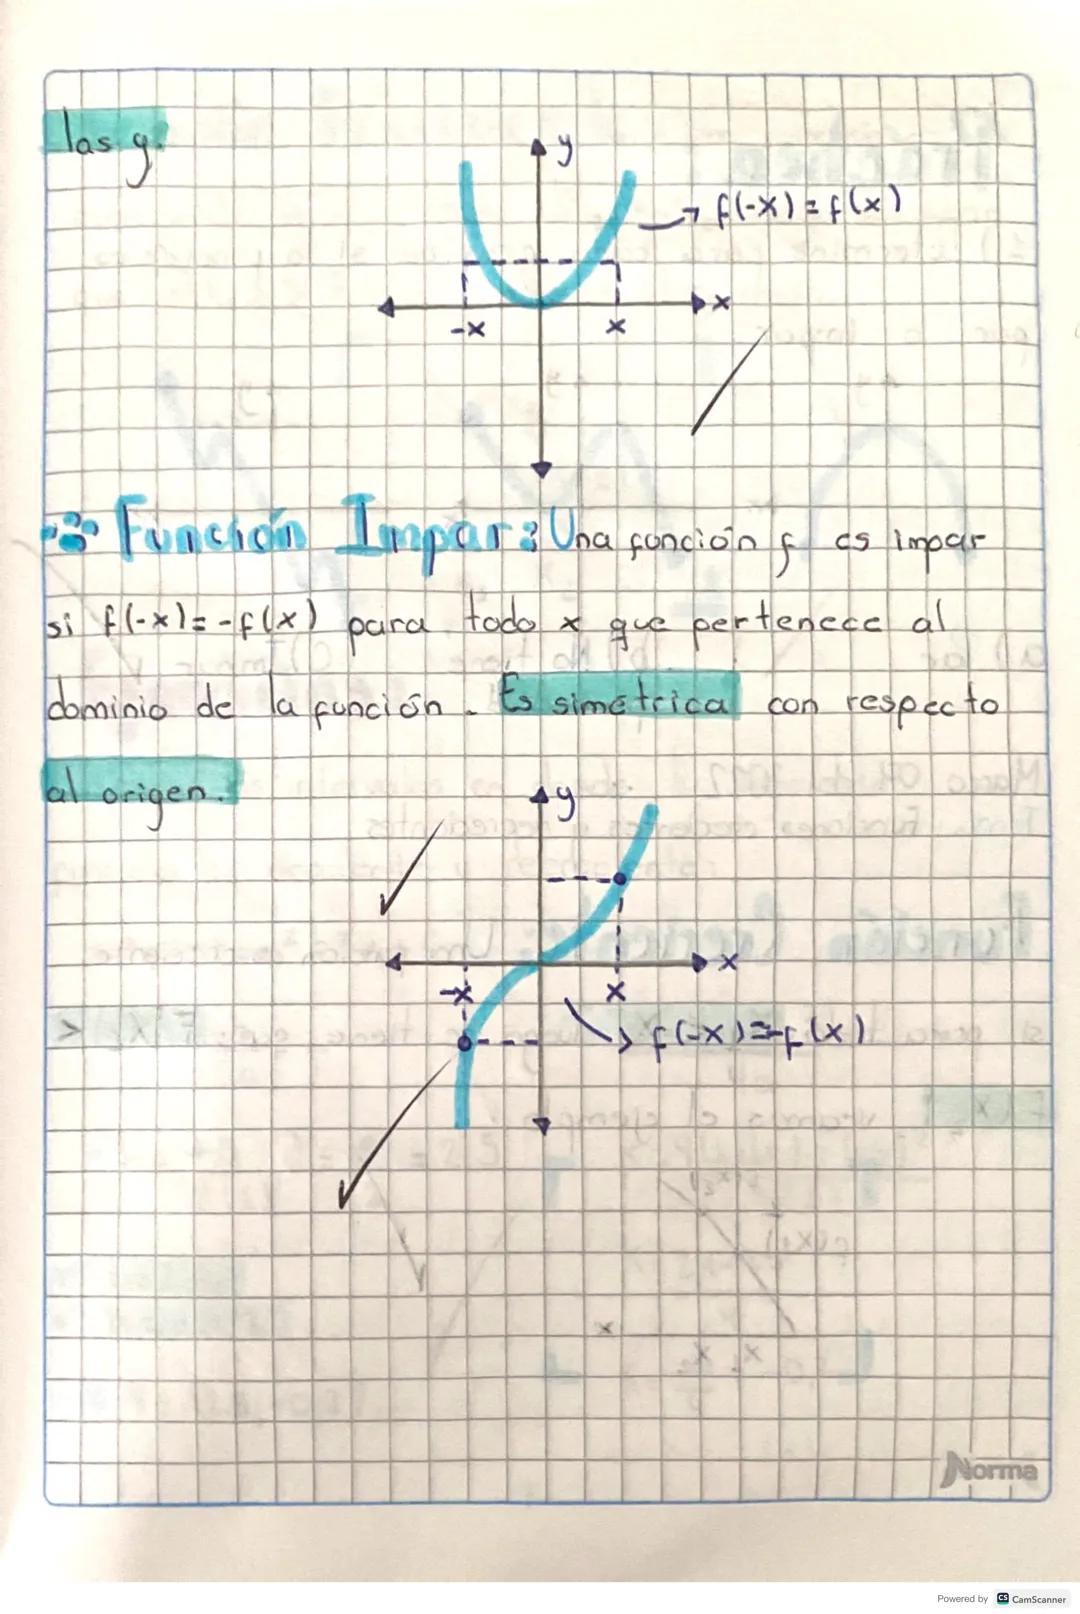 las y.
y
f(-x) = f(x)
x
-x
x
Función Impar: Una función f es impar
si f(-x) = -f(x) para todo x que pertenece al
dominio de la función. Es simétrica con respecto
al origen.
y
x
-x
x
f(-x)=-f(x)
Norma
Powered by CS CamScanner